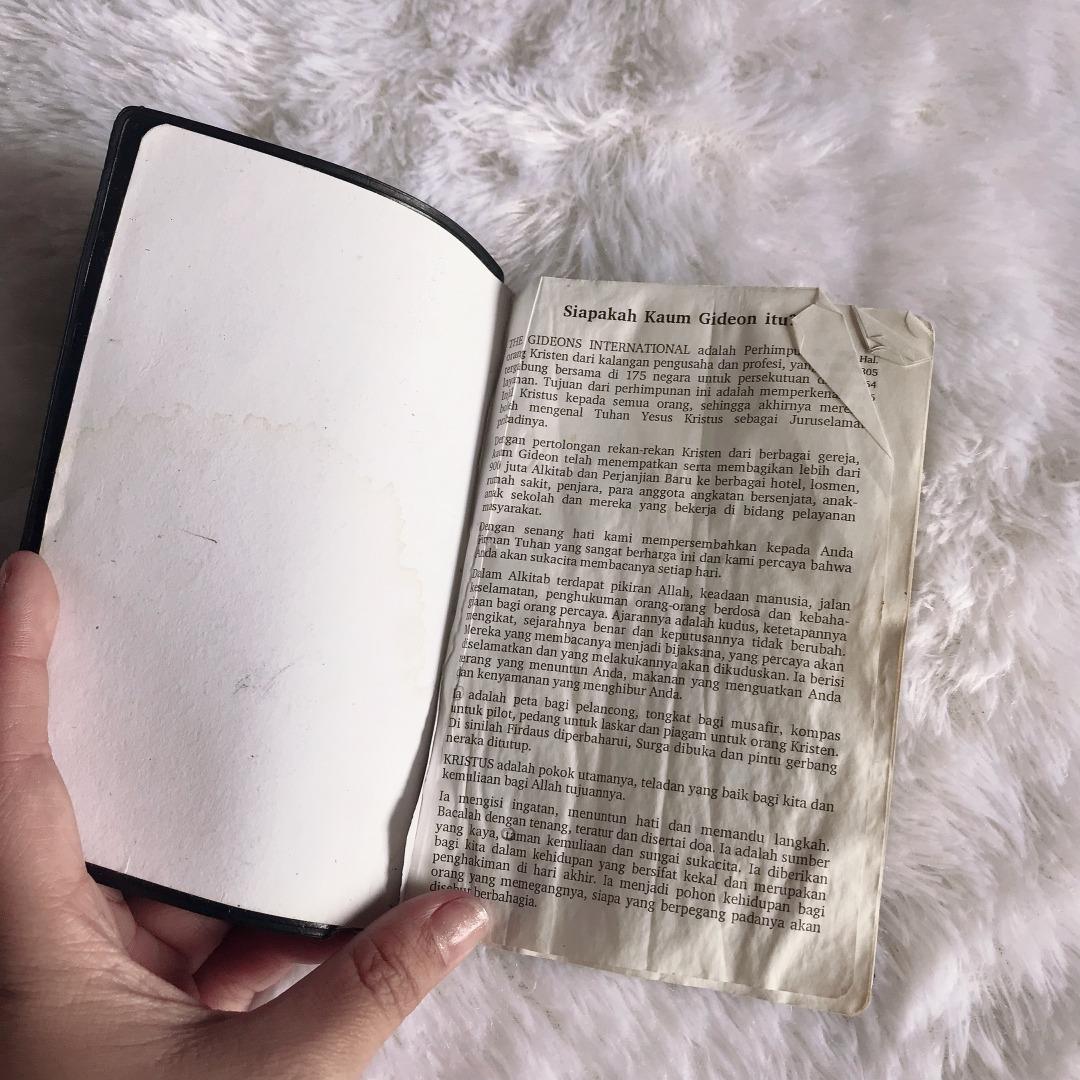 Siapakah Kaum Gideon itu?
THE GIDEONS INTERNATIONAL adalah
orang Kristen dari kalangan pengusaha dan profesi,
tergabung bersama di 175 negara untuk persekutuan
Tujuan dari perhimpunan ini adalah
Kristus kepada semua orang, sehingga akhirnya
mengenal Tuhan Yesus Kristus sebagai
pribadinya.
Dengan pertolongan rekan-rekan Kristen dari berbagai gereja,
kaum Gideon telah menempatkan serta membagikan lebih dari
900 juta Alkitab dan Perjanjian Baru ke berbagai hotel, losmen,
rumah sakit, penjara, para anggota angkatan bersenjata, anak-
anak sekolah dan mereka yang bekerja di bidang pelayanan
masyarakat.
Dengan senang hati kami mempersembahkan kepada Anda
Firman Tuhan yang sangat berharga ini dan kami percaya bahwa
Anda akan sukacita membacanya setiap hari.
Dalam Alkitab terdapat pikiran Allah, keadaan manusia, jalan
keselamatan, penghukuman orang-orang berdosa dan kebaha-
giaan bagi orang percaya. Ajarannya adalah kudus, ketetapannya
mengikat, sejarahnya benar dan keputusannya tidak berubah.
Mereka yang membacanya menjadi bijaksana, yang percaya akan
diselamatkan dan yang melakukannya akan dikuduskan. Ia berisi
terang yang menuntun Anda, makanan yang menguatkan Anda
dan kenyamanan yang menghibur Anda.
Ia adalah peta bagi pelancong, tongkat bagi musafir, kompas
untuk pilot, pedang untuk laskar dan piagam untuk orang Kristen.
Di sinilah Firdaus diperbaharui, Surga dibuka dan pintu gerbang
neraka ditutup.
KRISTUS adalah pokok utamanya, teladan yang baik bagi kita dan
kemuliaan bagi Allah tujuannya.
Ia mengisi ingatan, menuntun hati dan memandu langkah.
Bacalah dengan tenang, teratur dan disertai doa. Ia adalah sumber
yang kaya, taman kemuliaan dan sungai sukacita, Ia diberikan
bagi kita dalam kehidupan yang bersifat kekal dan merupakan
penghakiman di hari akhir. Ia menjadi pohon kehidupan bagi
orang yang memegangnya, siapa yang berpegang padanya akan
disebut berbahagia.
Hal.
305